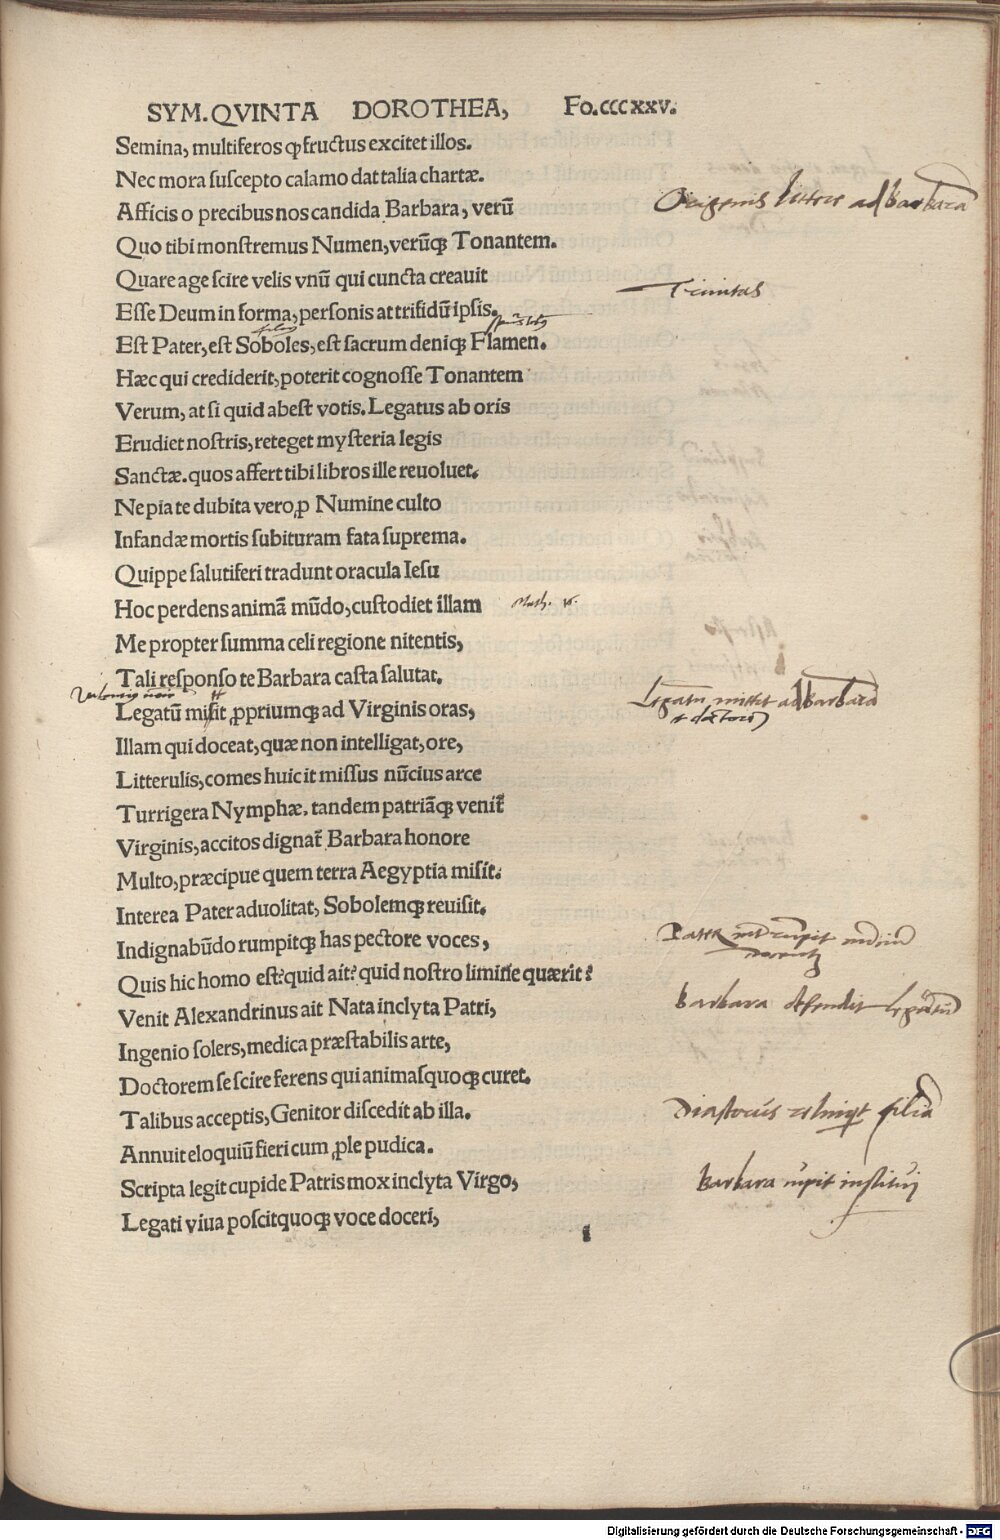 SYM. QVINTA DOROTHEA, Fo. CCCXXV.
Semina, multiferos qꝫ fructus excitet illos.
Nec mora suscepto calamo dat talia chartæ.
Afficis o precibus nos candida Barbara, verũ
Origenis littere ad Barbarã
Quo tibi monstremus Numen, verũqꝫ Tonantem.
Quare age scire velis vnũ qui cuncta creauit
Trinitas
Esse Deum in forma, personis at trifidũ ipsis.
filius
Est Pater, est Soboles, est sacrum deniqꝫ Flamen.
Hæc qui crediderit, poterit cognosse Tonantem
Verum, at si quid abest votis. Legatus ab oris
Erudiet nostris, reteget mysteria legis
Sanctæ. quos affert tibi libros ille reuoluet.
Ne pia te dubita vero ꝓ Numine culto
Infandæ mortis subituram fata suprema.
Quippe salutiferi tradunt oracula Iesu
Hoc perdens animã mũdo, custodiet illam
Me propter summa celi regione nitentis,
Tali responso te Barbara casta salutat.
Legatũ misit ꝓpriumqꝫ ad Virginis oras,
Legatũ mittit ad Barbarã
Illam qui doceat, quæ non intelligat, ore,
Litterulis, comes huic it missus nũcius arce
Turrigera Nymphæ. tandem patriãqꝫ venit̃
Virginis, accitos dignat̃ Barbara honore
Multo, præcipue quem terra Aegyptia misit.
Interea Pater aduolitat, Sobolemqꝫ reuisit.
Indignabũdo rumpitqꝫ has pectore voces,
Pater
Quis hic homo est? quid ait? quid nostro limine quærit?
Venit Alexandrinus ait Nata inclyta Patri,
Barbara defendit legatũ
Ingenio solers, medica præstabilis arte,
Doctorem se scire ferens qui animas quoqꝫ curet.
Talibus acceptis, Genitor discedit ab illa.
Dioscorus filiã
Annuit eloquiũ fieri cum ꝓle pudica.
Scripta legit cupide Patris mox inclyta Virgo,
Barbara cupit institui
Legati viua poscit quoqꝫ voce doceri,
Digitalisierung gefördert durch die Deutsche Forschungsgemeinschaft - DFG